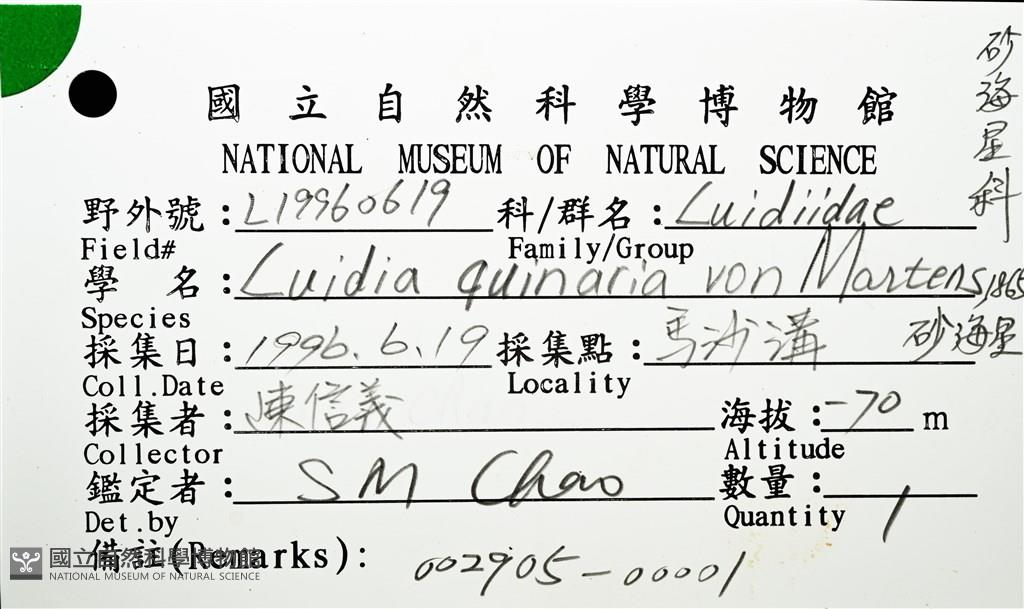 砂海星科
國立自然科學博物館
NATIONAL MUSEUM OF NATURAL SCIENCE
野外號：L19960619 科/群名：Luidiidae
Field# Family/Group
學名：Luidia quinaria von Martens, 1865
Species 砂海星
採集日：1996.6.19 採集點：馬沙溝
Coll.Date Locality
採集者：陳信義 海拔：-70 m
Collector Altitude
鑑定者：SM Chao 數量：1
Det.by Quantity
備註(Remarks)： 002905-00001
國立自然科學博物館
NATIONAL MUSEUM OF NATURAL SCIENCE